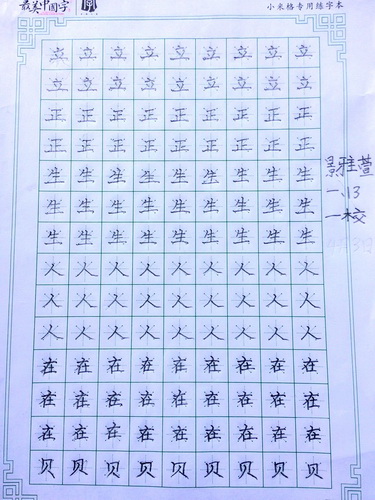 最美中国字
小米格专用练字本
立立立立立立立立立
立立立立立立立立立
正正正正正正正正正
正正正正正正正正正
生生生生生生生生生
生生生生生生生生生
生生生生生生生生生
人人人人人人人人人
人人人人人人人人人
人人人人人人人人人
在在在在在在在在在
在在在在在在在在在
在在在在在在在在在
贝贝贝贝贝贝贝贝贝
雅萱
一、13
一校